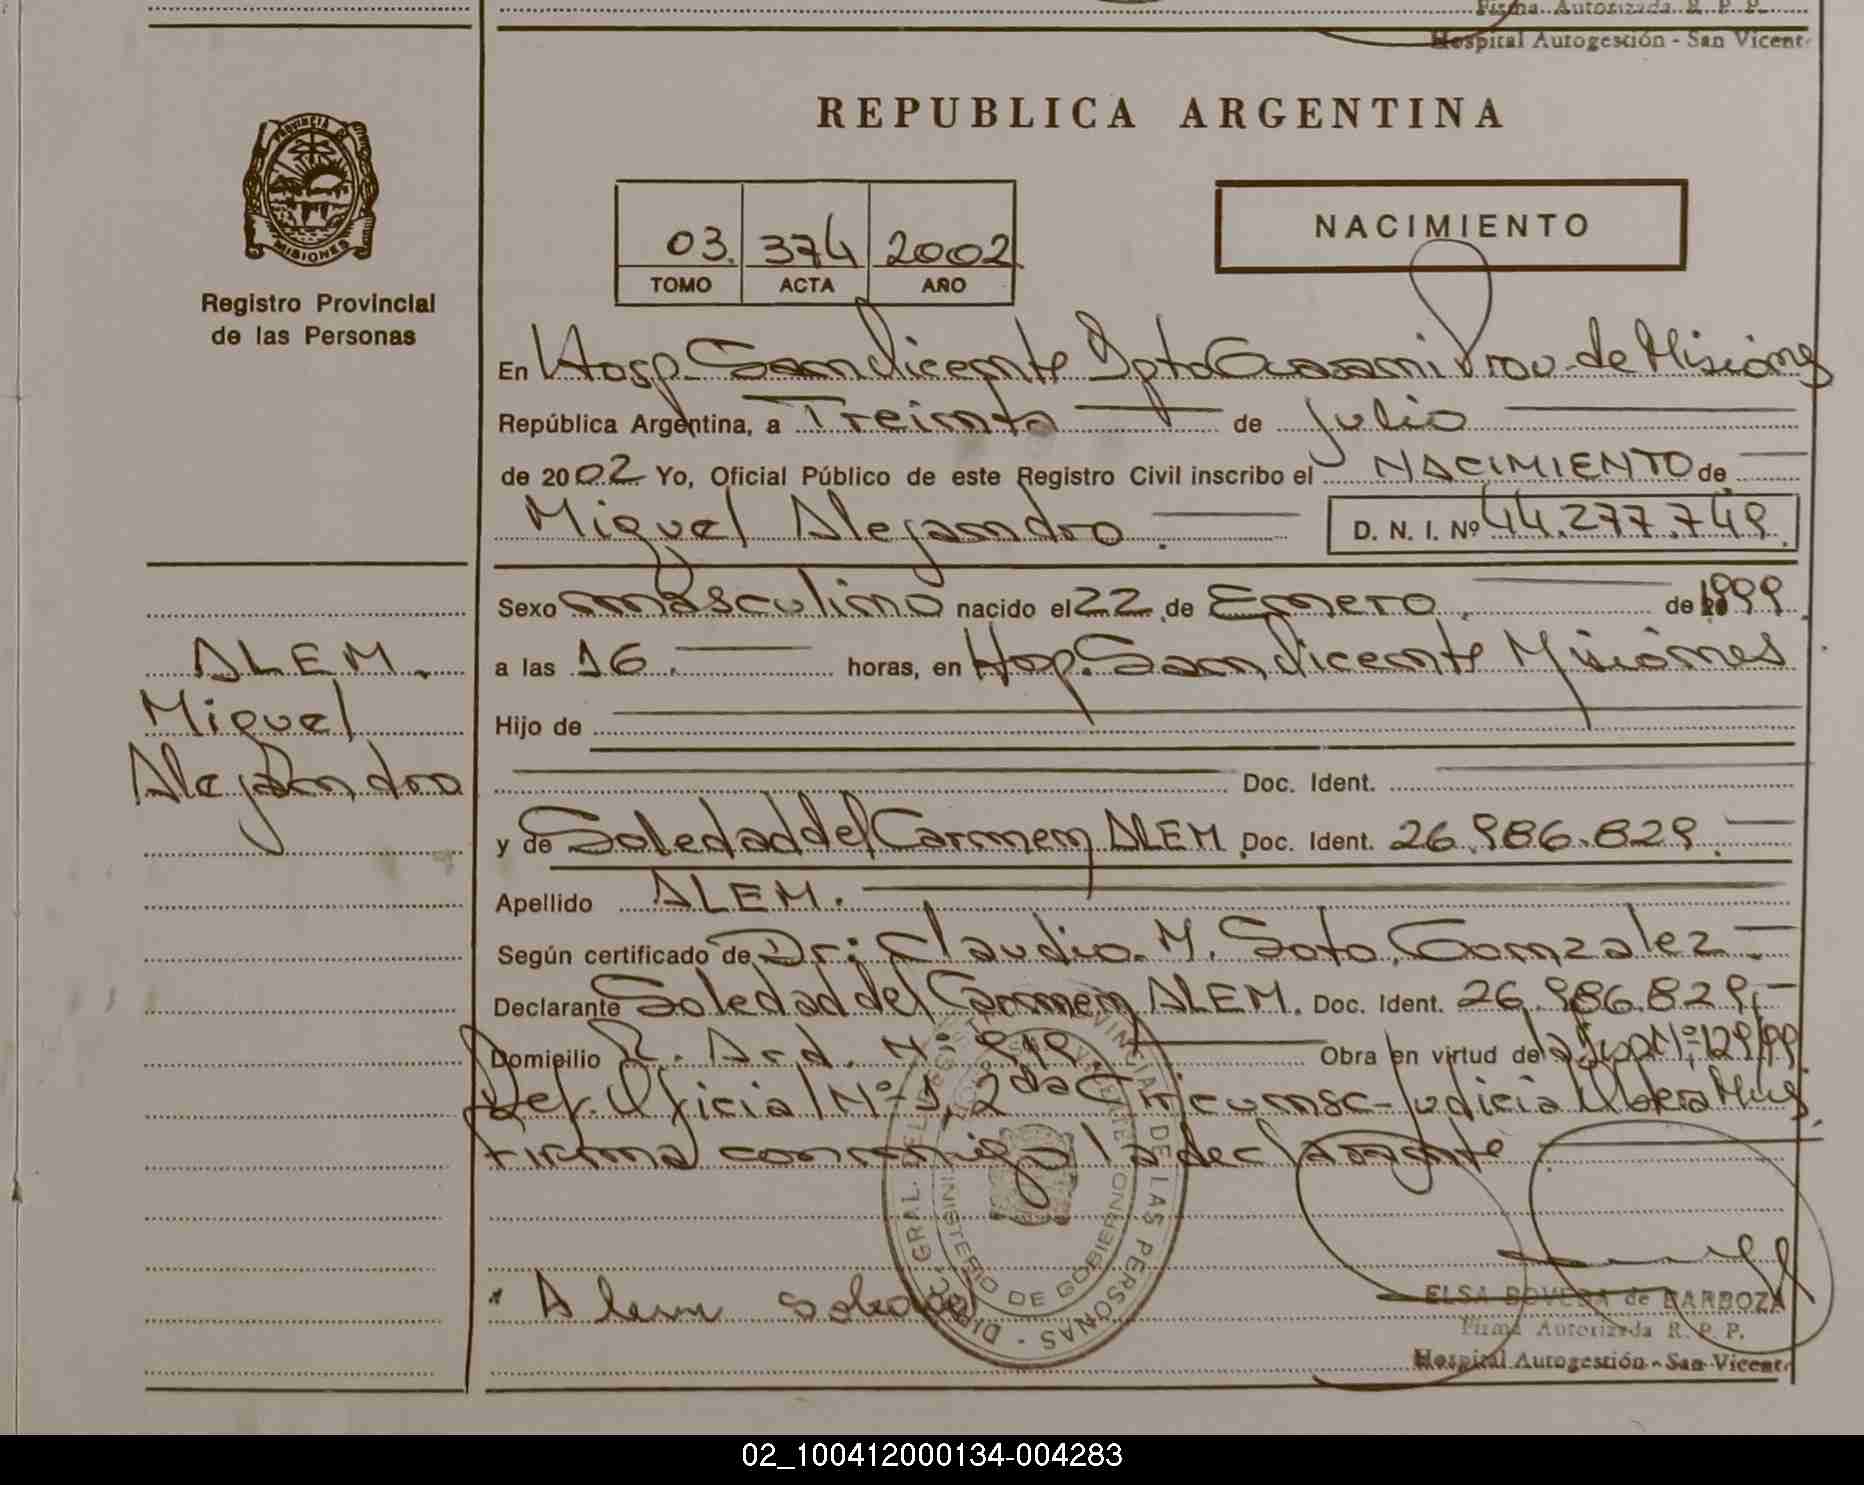 Firma Autorizada R. P. P.
Hospital Autogestión - San Vicente
REPUBLICA ARGENTINA
PROVINCIA DE
MISIONES
Registro Provincial
de las Personas
03. 374 2002
TOMO ACTA AÑO
NACIMIENTO
En Hosp. San Vicente Dpto Guaraní Prov. de Misiones
República Argentina, a Treinta de Julio
de 2002 Yo, Oficial Público de este Registro Civil inscribo el NACIMIENTO de
Miguel Alejandro. D. N. I. Nº 44.277.749.
Sexo masculino nacido el 22 de Enero. de 1999.
a las 16. horas, en Hosp. San Vicente Misiones
Hijo de
Doc. Ident.
y de Soledad del Carmen ALEM Doc. Ident. 26.986.829.
Apellido ALEM.
Según certificado de Dr: Claudio. M. Soto, Gonzalez.
Declarante Soledad del Carmen ALEM. Doc. Ident. 26.986.829.
Domicilio Nº Obra en virtud de la Nº 129/99
Def. Oficial Nº 1, 2da Circunsc. Judicial Obera Mnes.
firma conmigo la declarante
Alem soledad
DIREC. GRAL. DEL REGISTRO PROVINCIAL DE LAS PERSONAS
MINISTERIO DE GOBIERNO
ELSA BOVEDA de BARBOZA
Firma Autorizada R. P. P.
Hospital Autogestión - San Vicente
ALEM.
Miguel
Alejandro
02_100412000134-004283